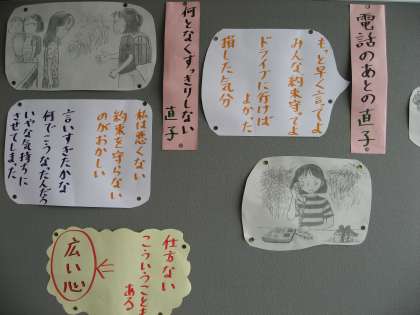 電話のあとの直子。
もっと早く言ってよ
みんな約束守ってよ
ドライブに行けば
よかった
損した気分
何となくすっきりしない
直子。
私は悪くない
約束を守らない
のがおかしい
言いすぎたかな
何でこうなったんだろう
いやな気持ちに
させてしまった
仕方ない
こういうことも
ある
広い心